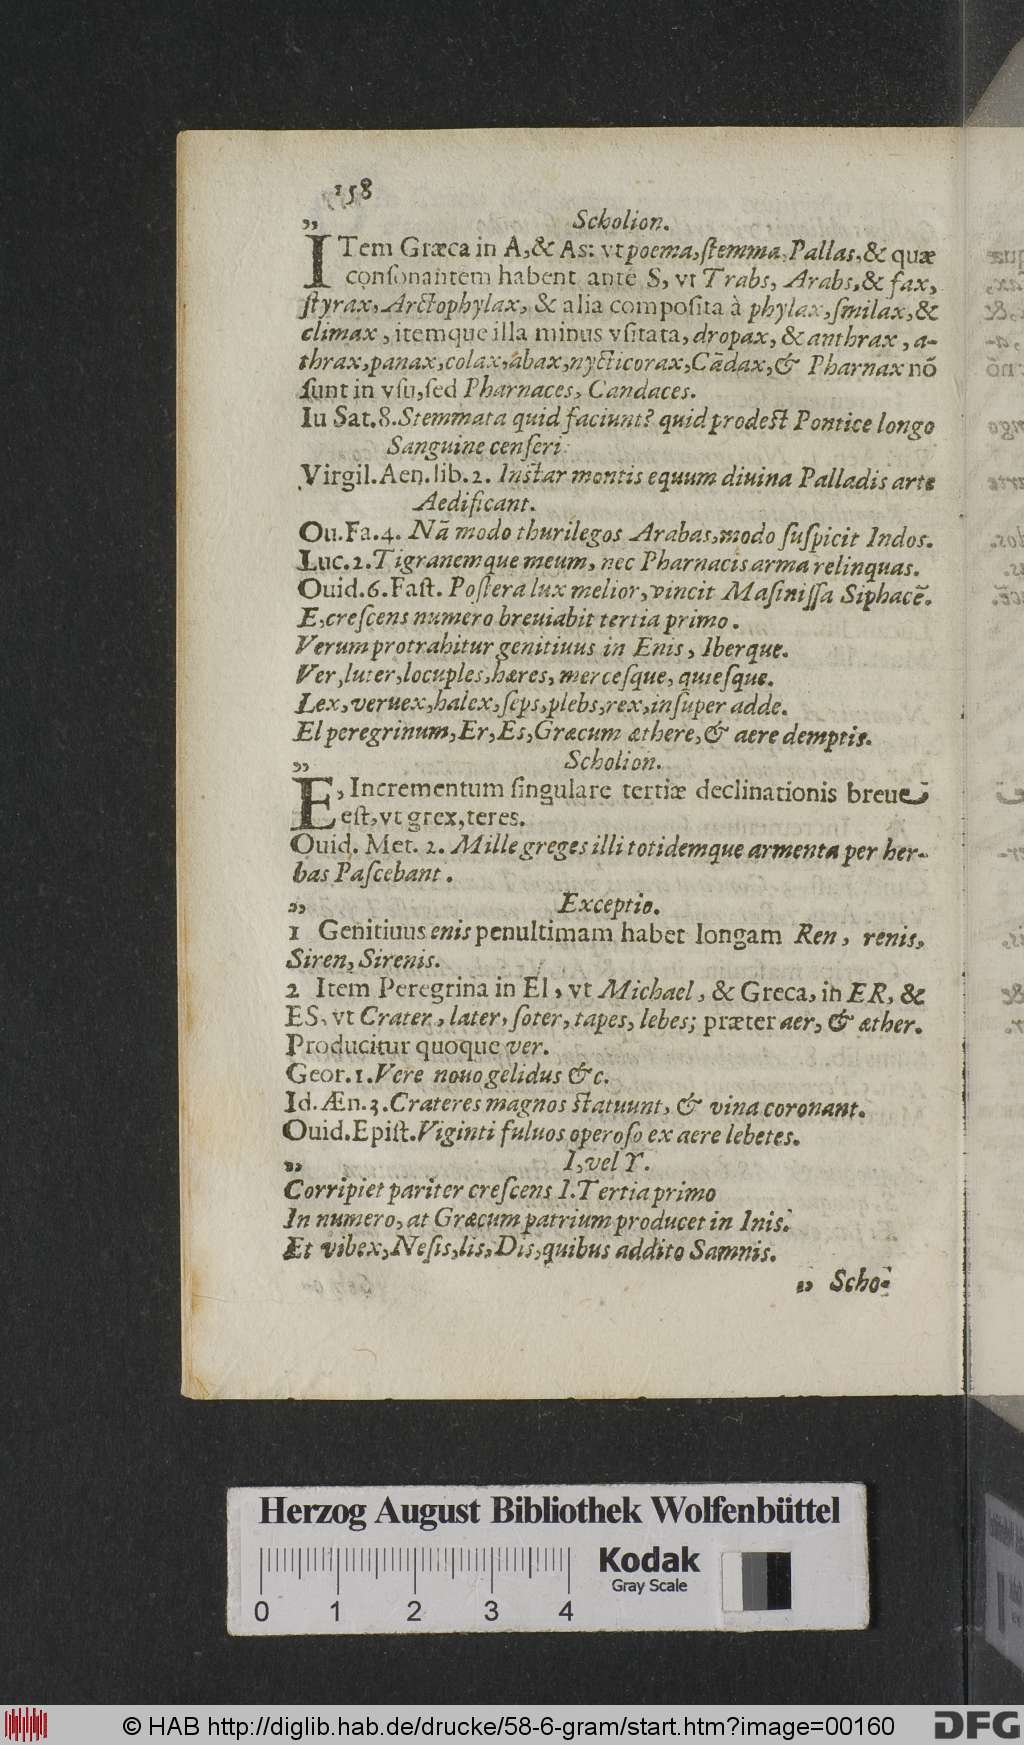 158
„ Scholion.
ITem Græca in A, & As: vt poema, ſtemma, Pallas, & quæ
conſonantem habent ante S, vt Trabs, Arabs, & fax,
ſtyrax, Arctophylax, & alia compoſita à phylax, ſmilax, &
climax, itemque illa minus vſitata, dropax, & anthrax, a-
thrax, panax, colax, abax, nycticorax, Cādax, & Pharnax nō
ſunt in vſu, ſed Pharnaces, Candaces.
Iu Sat. 8. Stemmata quid faciunt? quid prodeſt Pontice longo
Sanguine cenſeri.
Virgil. Aen. lib. 2. Inſtar montis equum diuina Palladis arte
Aedificant.
Ou. Fa. 4. Nā modo thurilegos Arabas, modo ſuſpicit Indos.
Luc. 2. Tigranemque meum, nec Pharnacis arma relinquas.
Ouid. 6. Faſt. Poſtera lux melior, vincit Maſiniſſa Siphacē.
E, creſcens numero breuiabit tertia primo.
Verum protrahitur genitiuus in Enis, Iberque.
Ver, luter, locuples, hæres, merceſque, quieſque.
Lex, veruex, halex, ſeps, plebs, rex, inſuper adde.
El peregrinum, Er, Es, Græcum æthere, & aere demptis.
„ Scholion.
E, Incrementum ſingulare tertiæ declinationis breue
eſt, vt grex, teres.
Ouid. Met. 2. Mille greges illi totidemque armenta per her-
bas Paſcebant.
„ Exceptio.
1 Genitiuus enis penultimam habet longam Ren, renis,
Siren, Sirenis.
2 Item Peregrina in El, vt Michael, & Greca, in ER, &
ES, vt Crater, later, ſoter, tapes, lebes; præter aer, & æther.
Producitur quoque ver.
Geor. 1. Vere nouo gelidus &c.
Id. Æn. 3. Crateres magnos ſtatuunt, & vina coronant.
Ouid. Epiſt. Viginti fuluos operoſo ex aere lebetes.
„ I, vel Y.
Corripiet pariter creſcens I. Tertia primo
In numero, at Græcum patrium producet in Inis.
Et vibex, Neſis, lis, Dis, quibus addito Samnis.
„ Scho-
Herzog August Bibliothek Wolfenbüttel
Kodak
Gray Scale
0 1 2 3 4
© HAB http://diglib.hab.de/drucke/58-6-gram/start.htm?image=00160
DFG